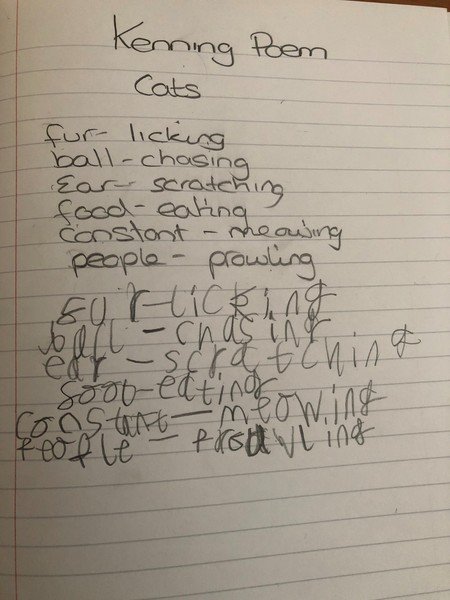 Kenning Poem
Cats
fur- licking
ball-chasing
Ear- scratching
food-eating
constant - meowing
people - prowling
fur-licking
ball-chasing
ear-scratching
food-eating
constant-meowing
people-prowling